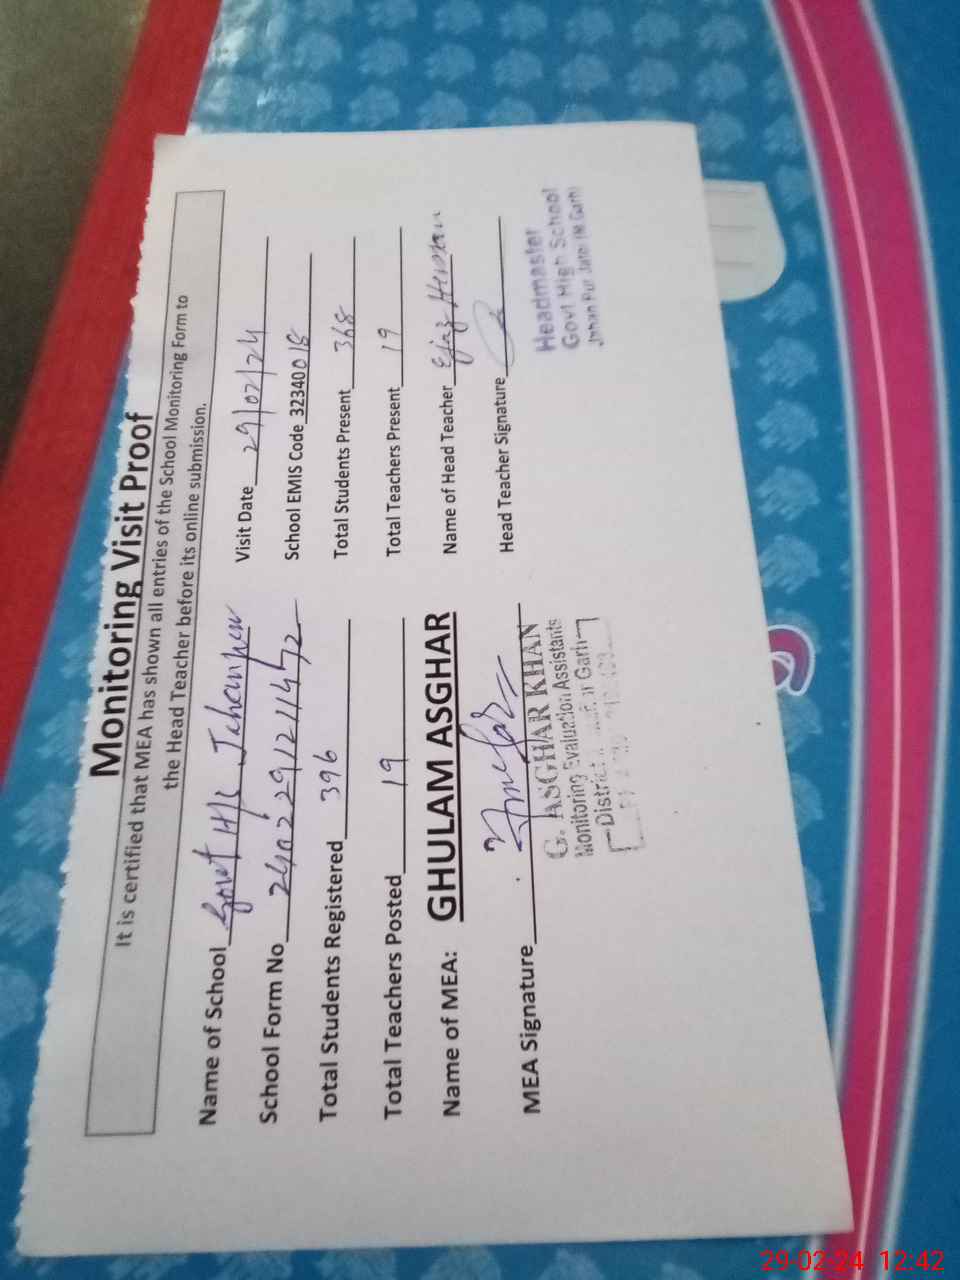 Monitoring Visit Proof
It is certified that MEA has shown all entries of the School Monitoring Form to
the Head Teacher before its online submission.
Name of School Govt H/S Jahanpur
Visit Date 29/02/24
School Form No
School EMIS Code 32340018
Total Students Registered 396
Total Students Present 368
Total Teachers Posted 19
Total Teachers Present 19
Name of MEA: GHULAM ASGHAR
Name of Head Teacher Ejaz Hussain
MEA Signature
Head Teacher Signature
G. ASGHAR KHAN
Monitoring Evaluation Assistants
District Garh
Headmaster
Govt High School
Jahan Pur Jatoi (M.Garh)
29-02-24 12:42